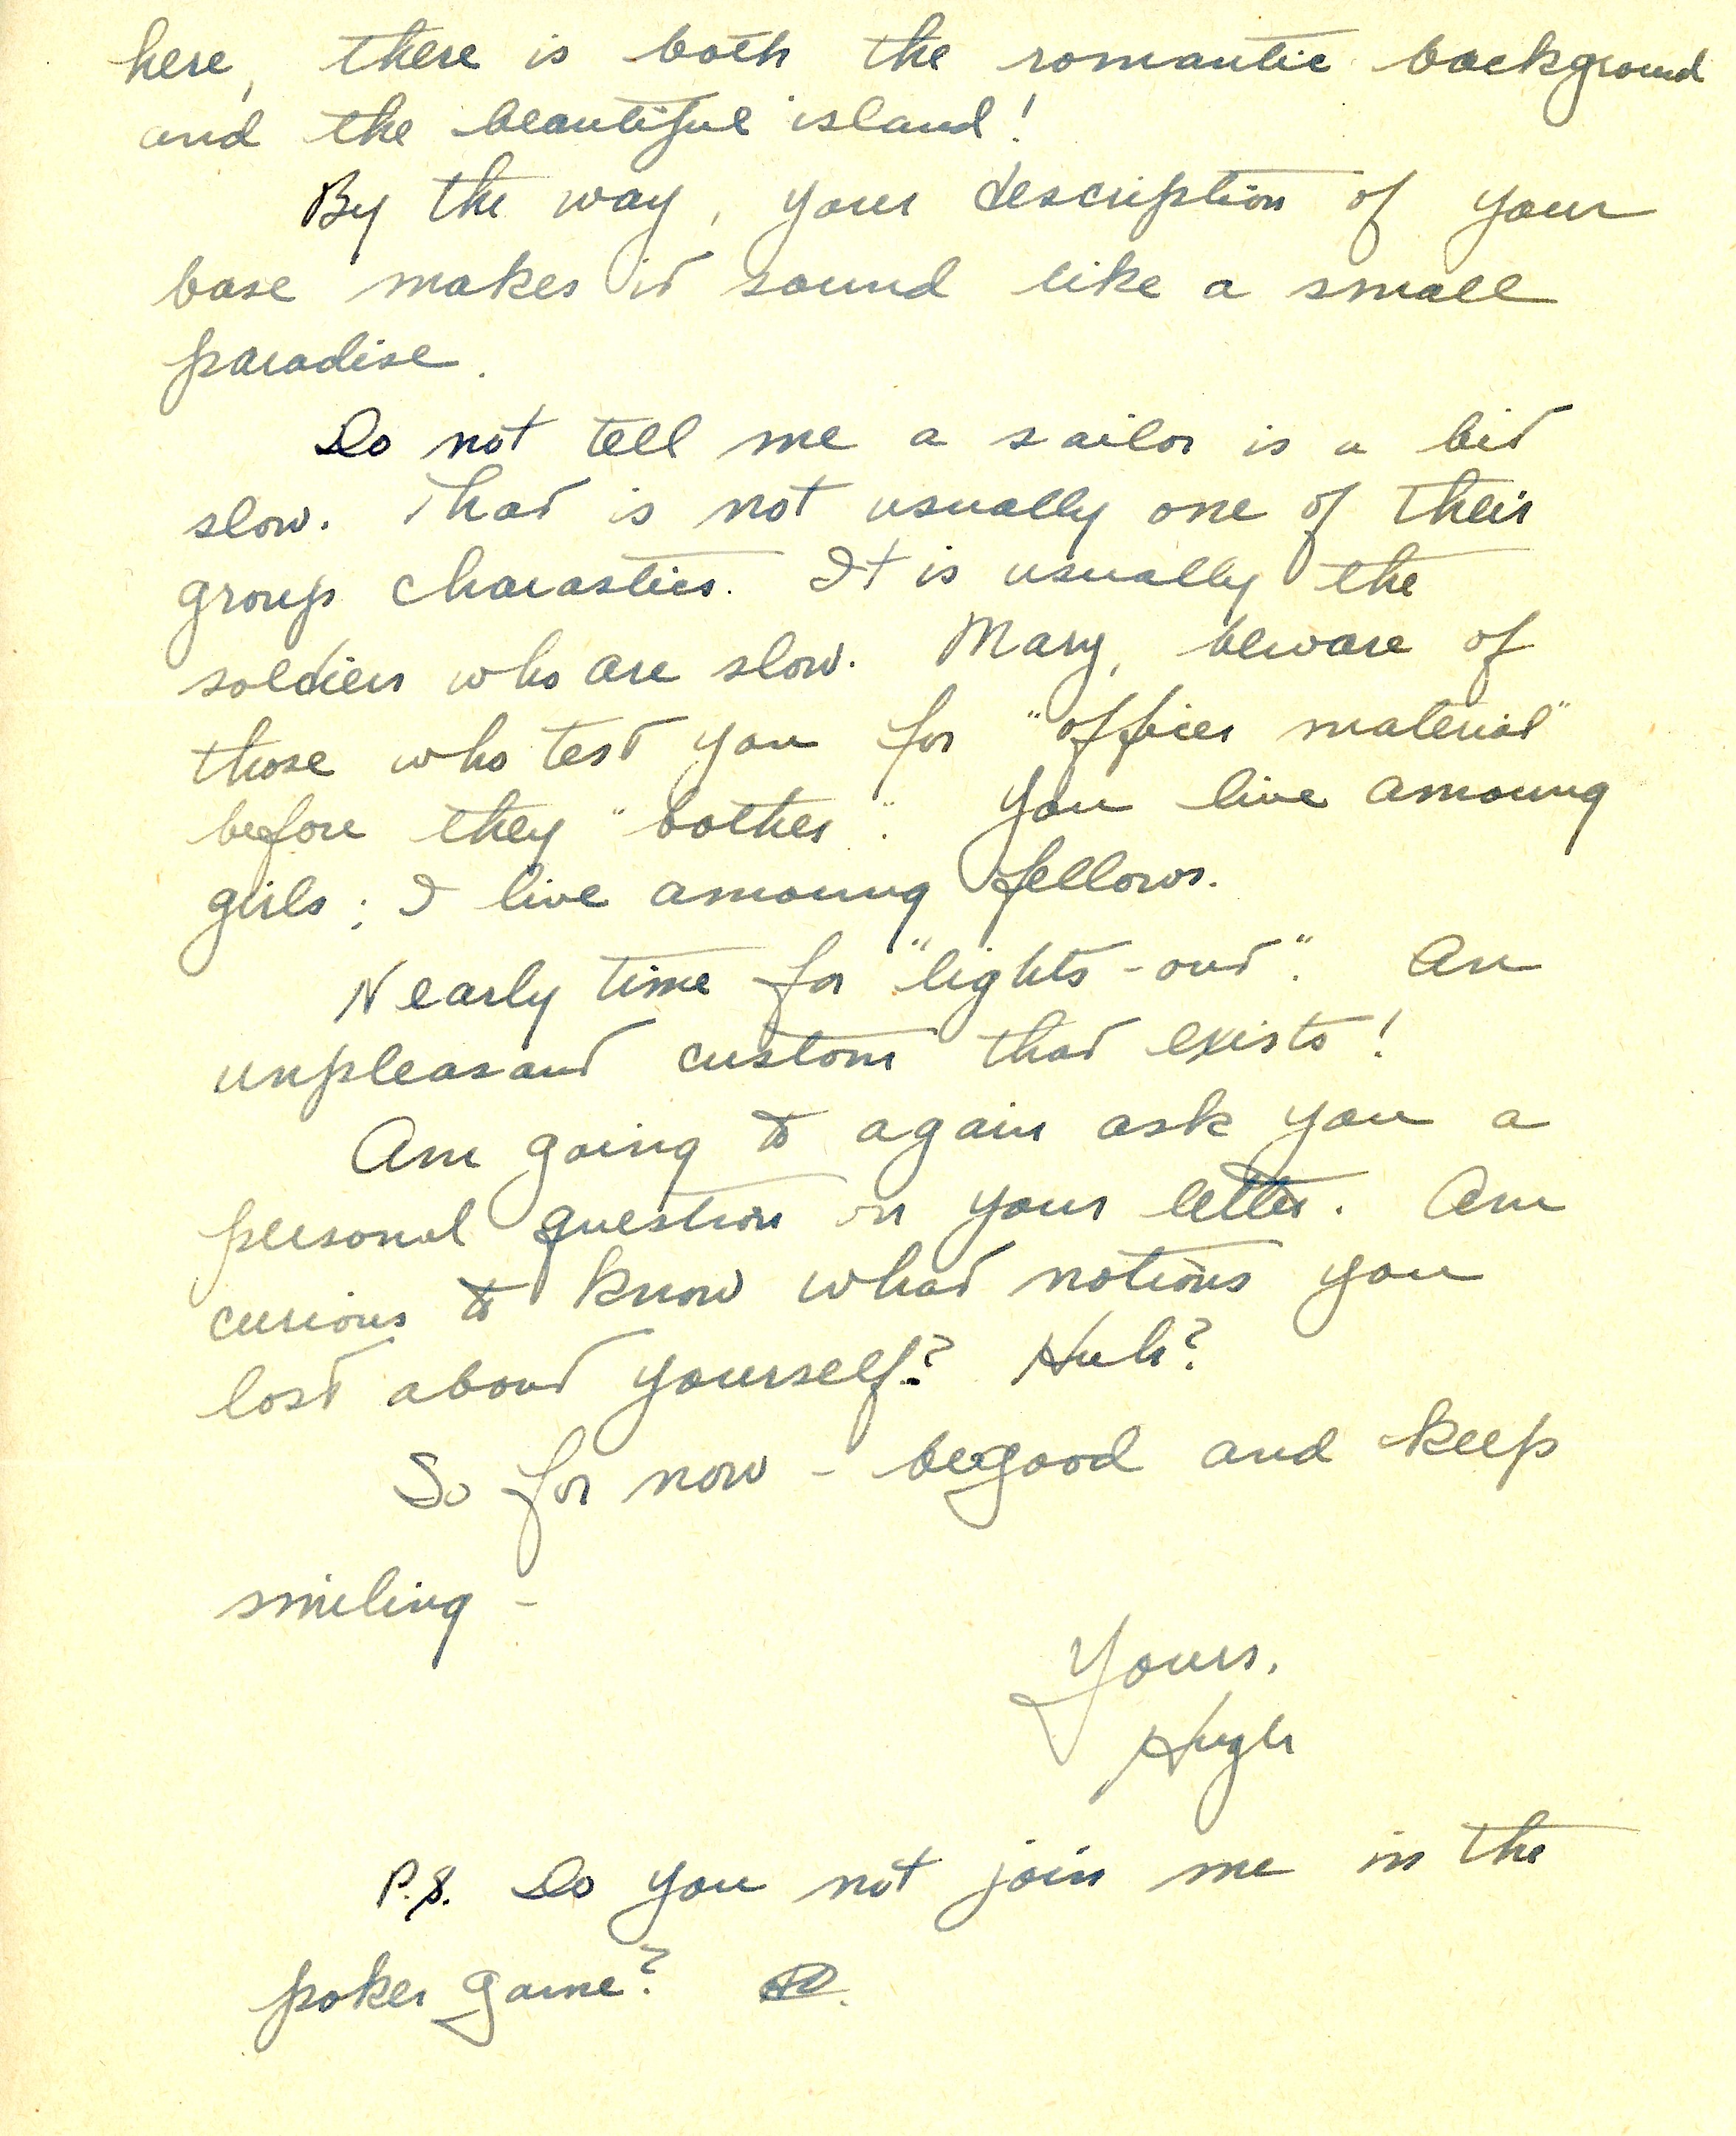 here, there is both the romantic background
and the beautiful island!
By the way, your description of your
base makes it sound like a small
paradise.
Do not tell me a sailor is a bit
slow. That is not usually one of their
group charastics. It is usually the
soldiers who are slow. Mary, beware of
those who test you for "officer material"
before they "bother". You live amoung
girls; I live amoung fellows.
Nearly time for "lights-out". An
unpleasant custom that exists!
Am going to again ask you a
personal question on your letter. Am
curious to know what notions you
lost about yourself? Huh?
So for now - be good and keep
smiling -
Yours,
Hugh
P.S. Do you not join me in the
poker game?